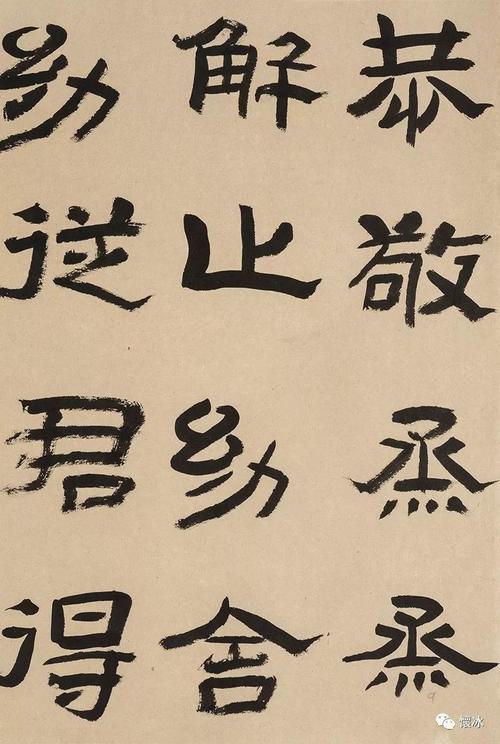 恭敬烝烝
解止幼舍
幼從君得
懷冰